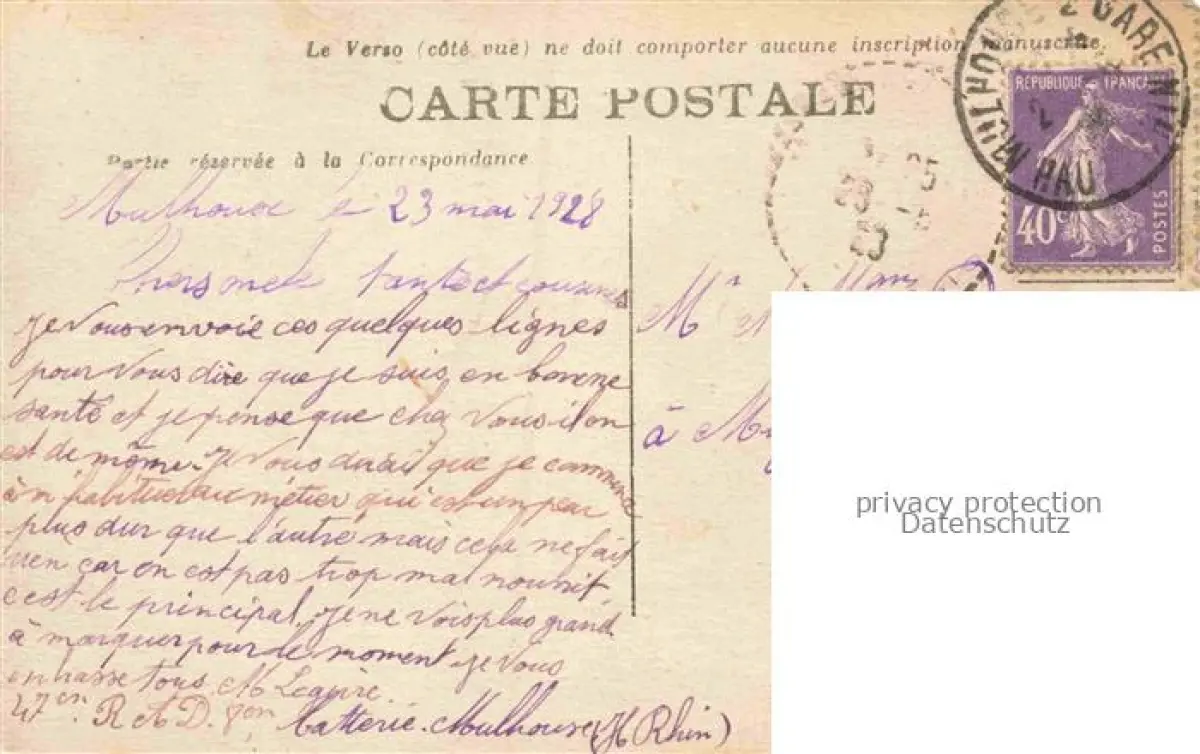 Le Verso (côté vue) ne doit comporter aucune inscription manuscrite.
CARTE POSTALE
Partie réservée à la Correspondance
MULHOUSE 2 GARE
MÜLHAU
RÉPUBLIQUE FRANÇAISE
40c
POSTES
Mulhouse le 23 mai 1928
tante et cousines
je vous envoie ces quelques lignes
pour vous dire que je suis en bonne
santé et je pense que chez vous il en
est de même. Je vous dirai que je commence
à m'habituer au métier qui est un peu
plus dur que l'autre mais cela ne fait
rien car on est pas trop mal nourrit
c'est le principal. Je ne vois plus grand
à marquer pour le moment je vous
embrasse tous. M
47em R A D. 7em Batterie. Mulhouse (H Rhin)
Mr
à
privacy protection
Datenschutz